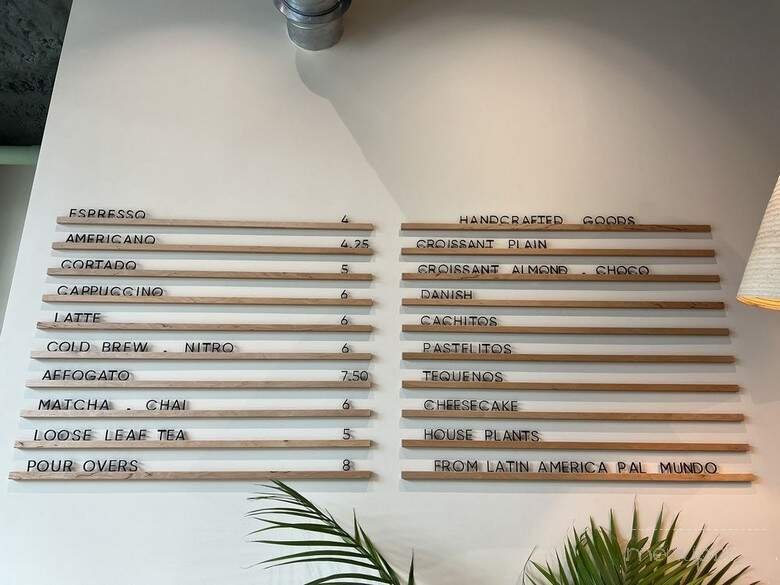 ESPRESSO 4
AMERICANO 4.25
CORTADO 5
CAPPUCCINO 6
LATTE 6
COLD BREW . NITRO 6
AFFOGATO 7.50
MATCHA . CHAI 6
LOOSE LEAF TEA 5
POUR OVERS 8
HANDCRAFTED GOODS
CROISSANT PLAIN
CROISSANT ALMOND . CHOCO
DANISH
CACHITOS
PASTELITOS
TEQUENOS
CHEESECAKE
HOUSE PLANTS
FROM LATIN AMERICA PAL MUNDO